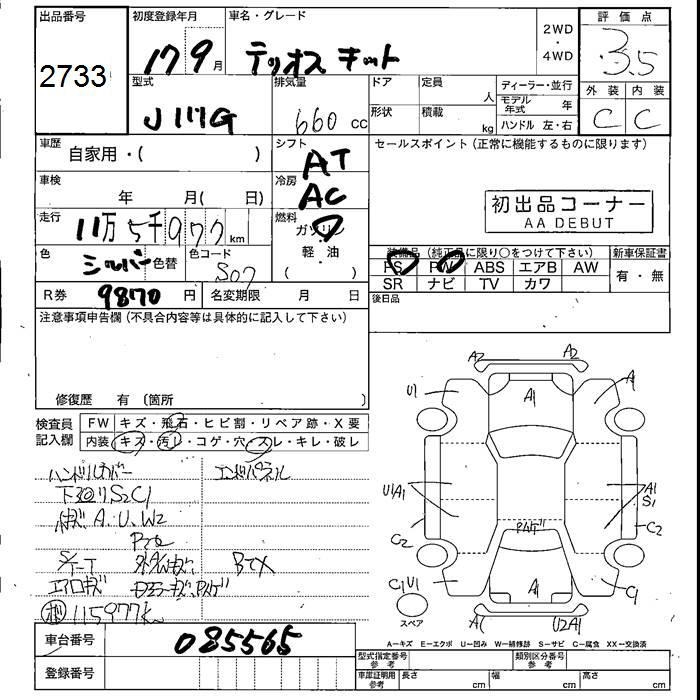 出品番号
2733
初度登録年月
17 9月
車名・グレード
テリオス キット
2WD
・
4WD
評価点
3.5
外装 内装
C C
型式
J111G
排気量
660 cc
ドア 定員
人
形状 積載
kg
ディーラー・並行
モデル年式 年
ハンドル 左・右
車歴
自家用・( )
シフト
AT
セールスポイント(正常に機能するものに限ります)
車検
年 月( 日)
冷房
AC
初出品コーナー
AA DEBUT
走行
11万5千977km
燃料
ガソリン
軽・油
( )
色
シルバー 色替
色コード
S07
装備品(純正品に限り○をつけて下さい)
PS PW ABS エアB AW
SR ナビ TV カワ
新車保証書
有・無
R券 9870 円
名変期限 月 日
後日品
注意事項申告欄(不具合内容等は具体的に記入して下さい)
修復歴 有(箇所 )
検査員
記入欄
FW キズ・飛石・ヒビ割・リペア跡・X要
内装 キズ・汚レ・コゲ・穴・スレ・キレ・破レ
ハンドルカバー エンドパネル
S2C1
A、U、W2
BTX
115977k
A2 A2
U1 A1 A
U1A1 A1
S1
C2 C2
C1U1 A1 C1
U2A1
スペア
A−キズ E−エクボ U−凹み W−補修跡 S−サビ C−腐食 XX−交換済
車台番号 085565
登録番号
型式指定番号
参考
類別区分番号
参考
車庫証明用
参考
長さ cm 幅 cm 高さ cm